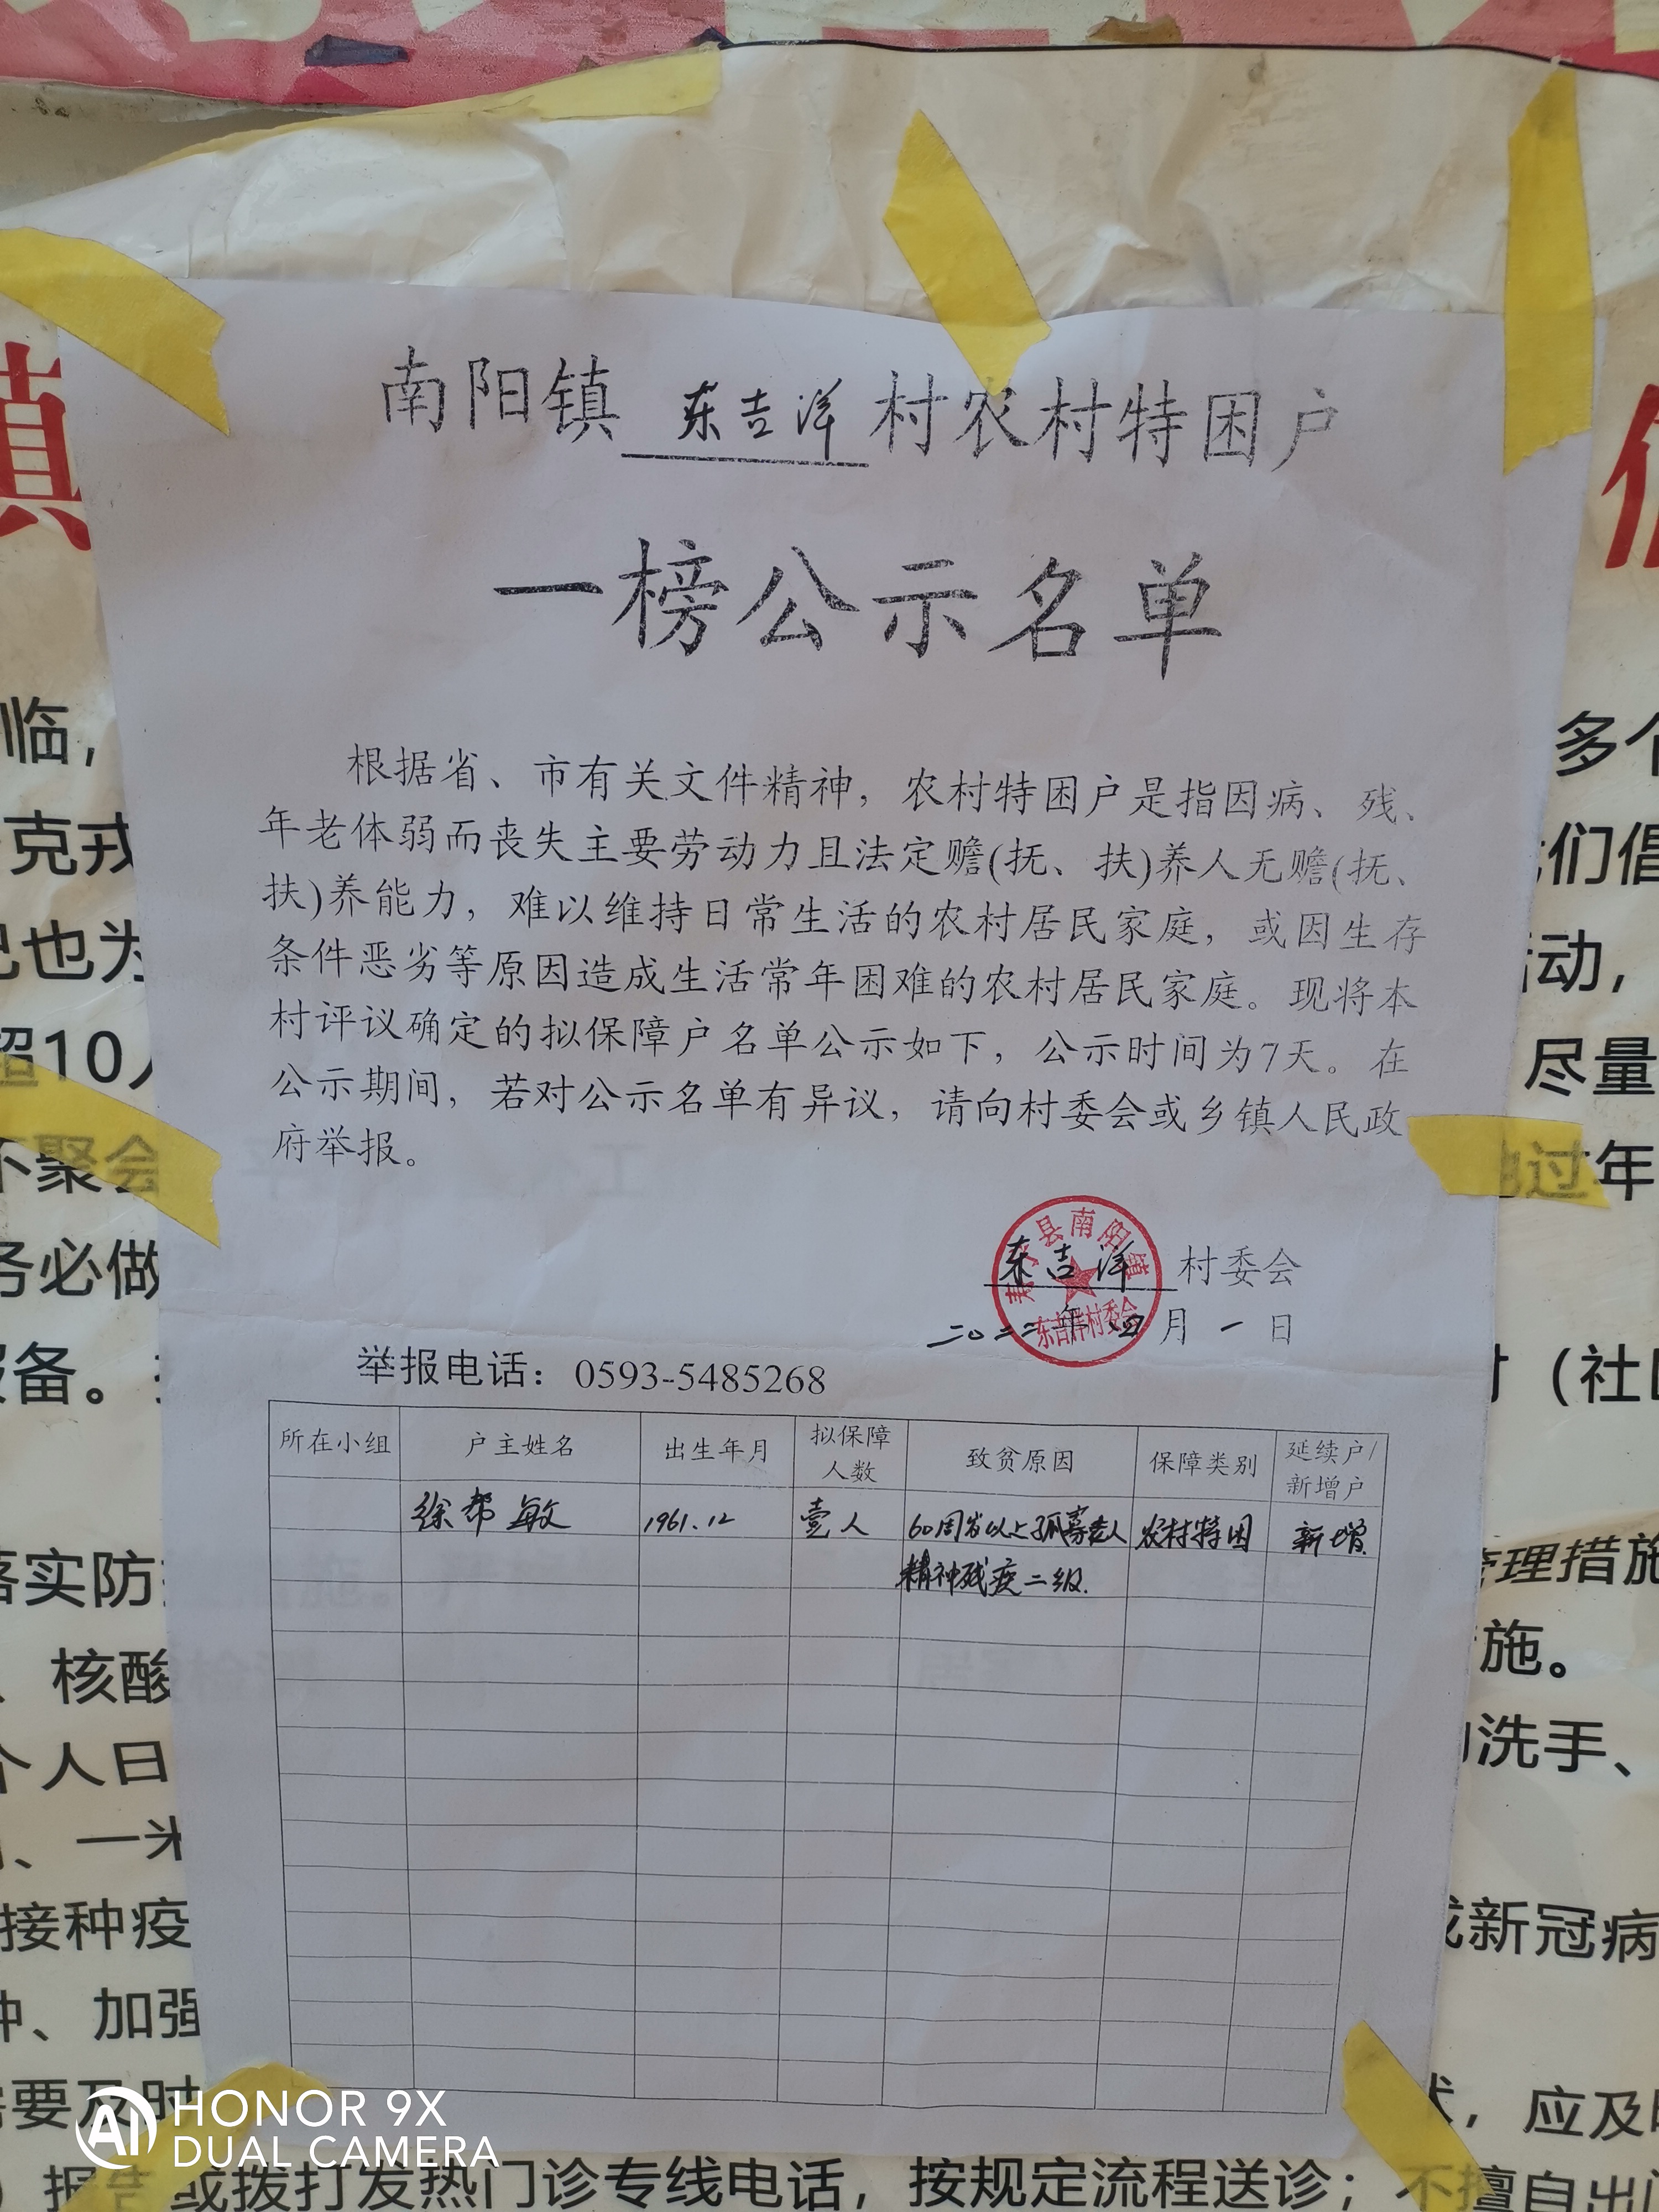 南阳镇 东吉洋 村农村特困户
一榜公示名单
根据省、市有关文件精神，农村特困户是指因病、残、
年老体弱而丧失主要劳动力且法定赡(抚、扶)养人无赡(抚、
扶)养能力，难以维持日常生活的农村居民家庭，或因生存
条件恶劣等原因造成生活常年困难的农村居民家庭。现将本
村评议确定的拟保障户名单公示如下，公示时间为7天。在
公示期间，若对公示名单有异议，请向村委会或乡镇人民政
府举报。
东吉洋 村委会
县南阳镇
东吉洋村委会
二0二二年四月一日
举报电话：0593-5485268
所在小组 户主姓名 出生年月 拟保障人数 致贫原因 保障类别 延续户/新增户
徐帮敏 1961.12 壹人 60周岁以上孤寡老人 农村特困 新增
精神残疾二级.
镇
临，
多个
克戎
们倡
也为
动，
超10人
尽量
不聚会
过年
务必做
备。
（社
落实防
管理措施
、核酸
施。
个人日
洗手、
、一米
接种疫
新冠病
种、加强
要及时
，应及
或拨打发热门诊专线电话，按规定流程送诊；不擅自出
HONOR 9X
DUAL CAMERA
AI